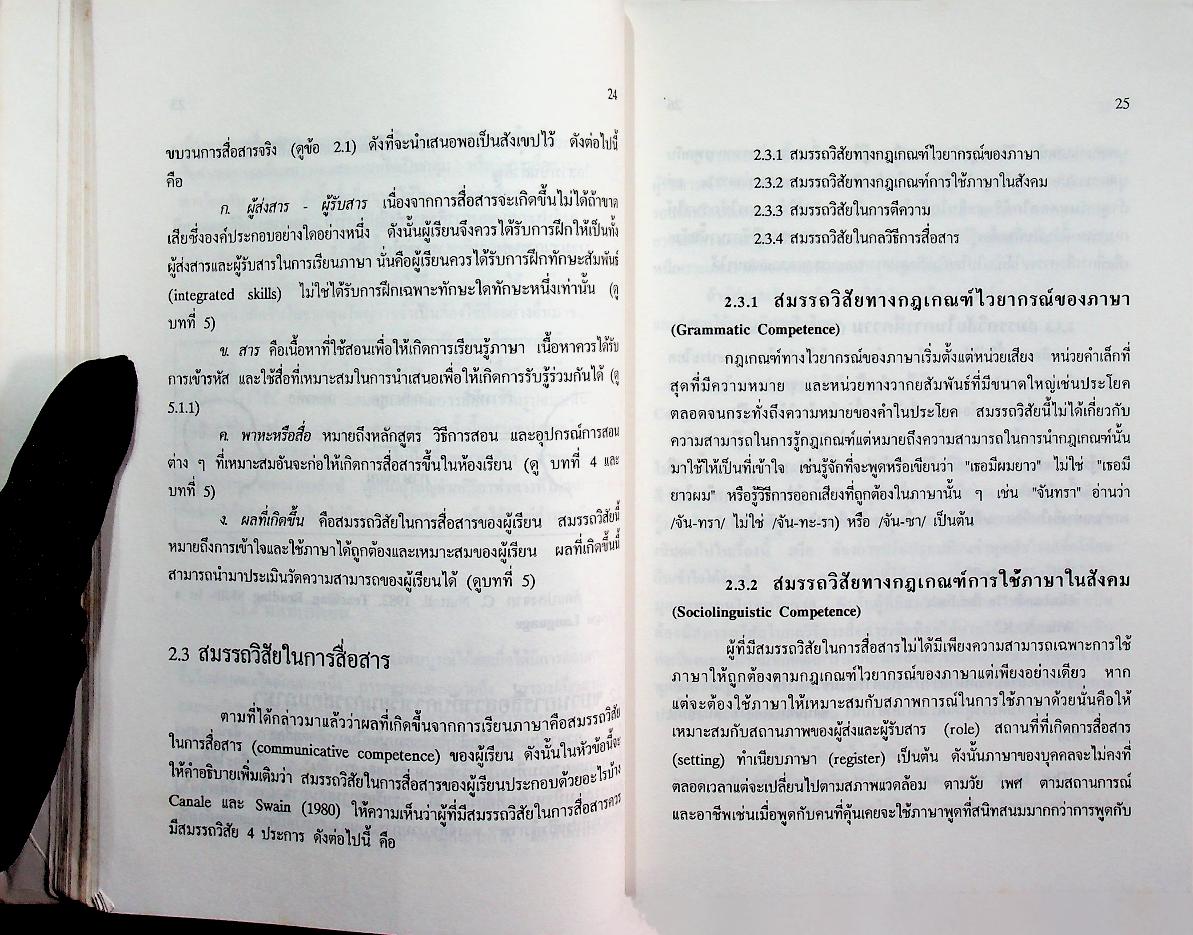 24
ขบวนการสื่อสารจริง (ดูข้อ 2.1) ดังที่จะนำเสนอพอเป็นสังเขปไว้ ดังต่อไปนี้
คือ
ก. ผู้ส่งสาร - ผู้รับสาร เนื่องจากการสื่อสารจะเกิดขึ้นไม่ได้ถ้าขาด
เสียซึ่งองค์ประกอบอย่างใดอย่างหนึ่ง ดังนั้นผู้เรียนจึงควรได้รับการฝึกให้เป็นทั้ง
ผู้ส่งสารและผู้รับสารในการเรียนภาษา นั่นคือผู้เรียนควรได้รับการฝึกทักษะสัมพันธ์
(integrated skills) ไม่ใช่ได้รับการฝึกเฉพาะทักษะใดทักษะหนึ่งเท่านั้น (ดู
บทที่ 5)
ข. สาร คือเนื้อหาที่ใช้สอนเพื่อให้เกิดการเรียนรู้ภาษา เนื้อหาควรได้รับ
การเข้ารหัส และใช้สื่อที่เหมาะสมในการนำเสนอเพื่อให้เกิดการรับรู้ร่วมกันได้ (ดู
5.1.1)
ค. พาหะหรือสื่อ หมายถึงหลักสูตร วิธีการสอน และอุปกรณ์การสอน
ต่าง ๆ ที่เหมาะสมอันจะก่อให้เกิดการสื่อสารขึ้นในห้องเรียน (ดู บทที่ 4 และ
บทที่ 5)
ง. ผลที่เกิดขึ้น คือสมรรถวิสัยในการสื่อสารของผู้เรียน สมรรถวิสัยนี้
หมายถึงการเข้าใจและใช้ภาษาได้ถูกต้องและเหมาะสมของผู้เรียน ผลที่เกิดขึ้นนี้
สามารถนำมาประเมินวัดความสามารถของผู้เรียนได้ (ดูบทที่ 5)
2.3 สมรรถวิสัยในการสื่อสาร
ตามที่ได้กล่าวมาแล้วว่าผลที่เกิดขึ้นจากการเรียนภาษาคือสมรรถวิสัย
ในการสื่อสาร (communicative competence) ของผู้เรียน ดังนั้นในหัวข้อนี้จะ
ให้คำอธิบายเพิ่มเติมว่า สมรรถวิสัยในการสื่อสารของผู้เรียนประกอบด้วยอะไรบ้าง
Canale และ Swain (1980) ให้ความเห็นว่าผู้ที่มีสมรรถวิสัยในการสื่อสารควร
มีสมรรถวิสัย 4 ประการ ดังต่อไปนี้ คือ
25
2.3.1 สมรรถวิสัยทางกฎเกณฑ์ไวยากรณ์ของภาษา
2.3.2 สมรรถวิสัยทางกฎเกณฑ์การใช้ภาษาในสังคม
2.3.3 สมรรถวิสัยในการตีความ
2.3.4 สมรรถวิสัยในกลวิธีการสื่อสาร
2.3.1 สมรรถวิสัยทางกฎเกณฑ์ไวยากรณ์ของภาษา
(Grammatic Competence)
กฎเกณฑ์ทางไวยากรณ์ของภาษาเริ่มตั้งแต่หน่วยเสียง หน่วยคำเล็กที่
สุดที่มีความหมาย และหน่วยทางวากยสัมพันธ์ที่มีขนาดใหญ่เช่นประโยค
ตลอดจนกระทั่งถึงความหมายของคำในประโยค สมรรถวิสัยนี้ไม่ได้เกี่ยวกับ
ความสามารถในการรู้กฎเกณฑ์แต่หมายถึงความสามารถในการนำกฎเกณฑ์นั้น
มาใช้ให้เป็นที่เข้าใจ เช่นรู้จักที่จะพูดหรือเขียนว่า "เธอมีผมยาว" ไม่ใช่ "เธอมี
ยาวผม" หรือรู้วิธีการออกเสียงที่ถูกต้องในภาษานั้น ๆ เช่น "จันทรา" อ่านว่า
/จัน-ทรา/ ไม่ใช่ /จัน-ทะ-รา) หรือ /จัน-ซา/ เป็นต้น
2.3.2 สมรรถวิสัยทางกฎเกณฑ์การใช้ภาษาในสังคม
(Sociolinguistic Competence)
ผู้ที่มีสมรรถวิสัยในการสื่อสารไม่ได้มีเพียงความสามารถเฉพาะการใช้
ภาษาให้ถูกต้องตามกฎเกณฑ์ไวยากรณ์ของภาษาแต่เพียงอย่างเดียว หาก
แต่จะต้องใช้ภาษาให้เหมาะสมกับสภาพการณ์ในการใช้ภาษาด้วยนั่นคือให้
เหมาะสมกับสถานภาพของผู้ส่งและผู้รับสาร (role) สถานที่ที่เกิดการสื่อสาร
(setting) ทำเนียบภาษา (register) เป็นต้น ดังนั้นภาษาของบุคคลจะไม่คงที่
ตลอดเวลาแต่จะเปลี่ยนไปตามสภาพแวดล้อม ตามวัย เพศ ตามสถานการณ์
และอาชีพเช่นเมื่อพูดกับคนที่คุ้นเคยจะใช้ภาษาพูดที่สนิทสนมมากกว่าการพูดกับ